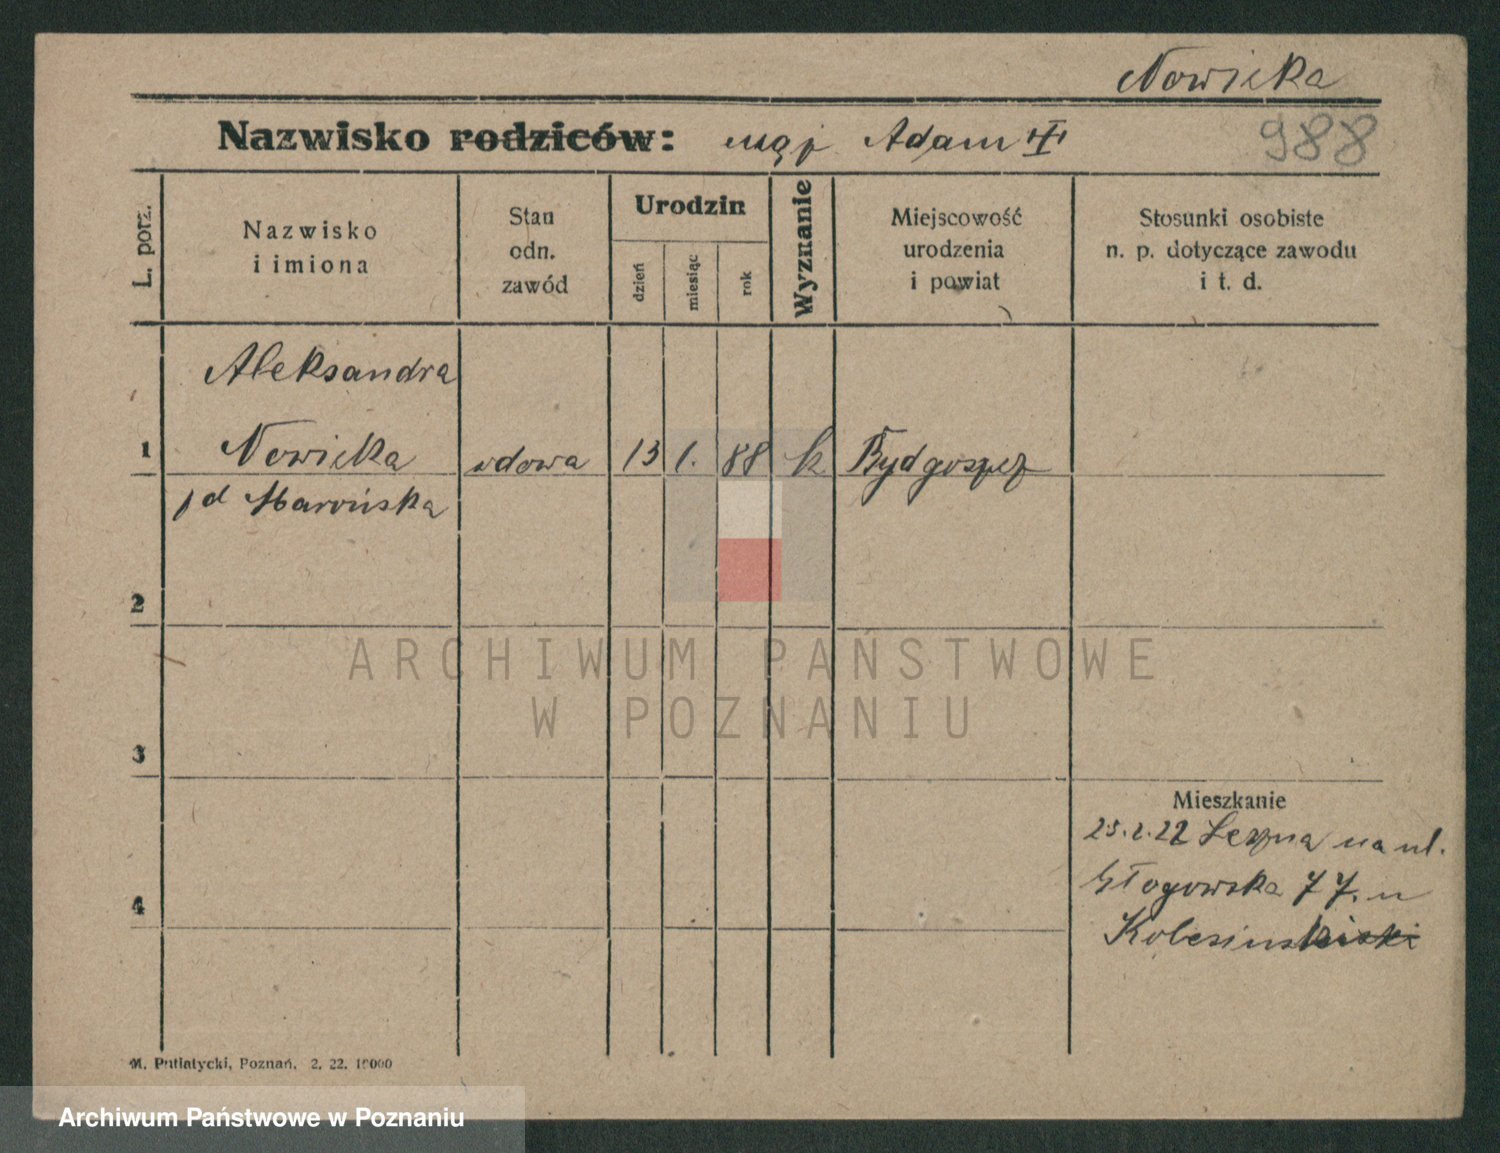 Nowicka
Nazwisko rodziców: mąż Adam
988
L. porz.
Nazwisko
i imiona
Stan
odn.
zawód
Urodzin
dzień
miesiąc
rok
Wyznanie
Miejscowość
urodzenia
i powiat
Stosunki osobiste
n. p. dotyczące zawodu
i t. d.
Aleksandra
1 Nowicka wdowa 13 1. 88 k Bydgoszcz
2
3
4
Mieszkanie
25.2.22 na ul.
Głogowska 77. u
M. Putiatycki, Poznań. 2. 22. 10000
ARCHIWUM PAŃSTWOWE
W POZNANIU
Archiwum Państwowe w Poznaniu